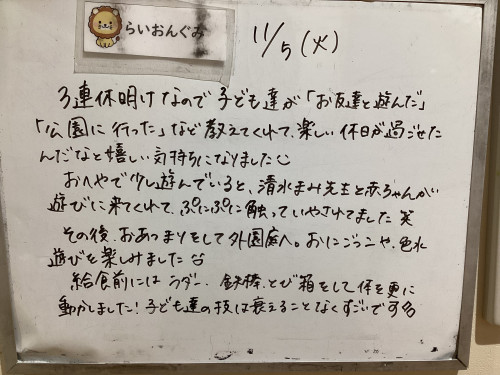 らいおんぐみ
11/5(火)
3連休明けなので子ども達が「お友達と遊んだ」
「公園に行った」など教えてくれて、楽しい休日が過ごせた
んだなと嬉しい気持ちになりました
おへやで少し遊んでいると、清水まみ先生と赤ちゃんが
遊びに来てくれて、ぷにぷに触っていやされてました 笑
その後、おあつまりをして外園庭へ。おにごっこや、色水
遊びを楽しみました
給食前にはラダー、鉄棒、とび箱をして体を更に
動かしました!子ども達の技は衰えることなくすごいです